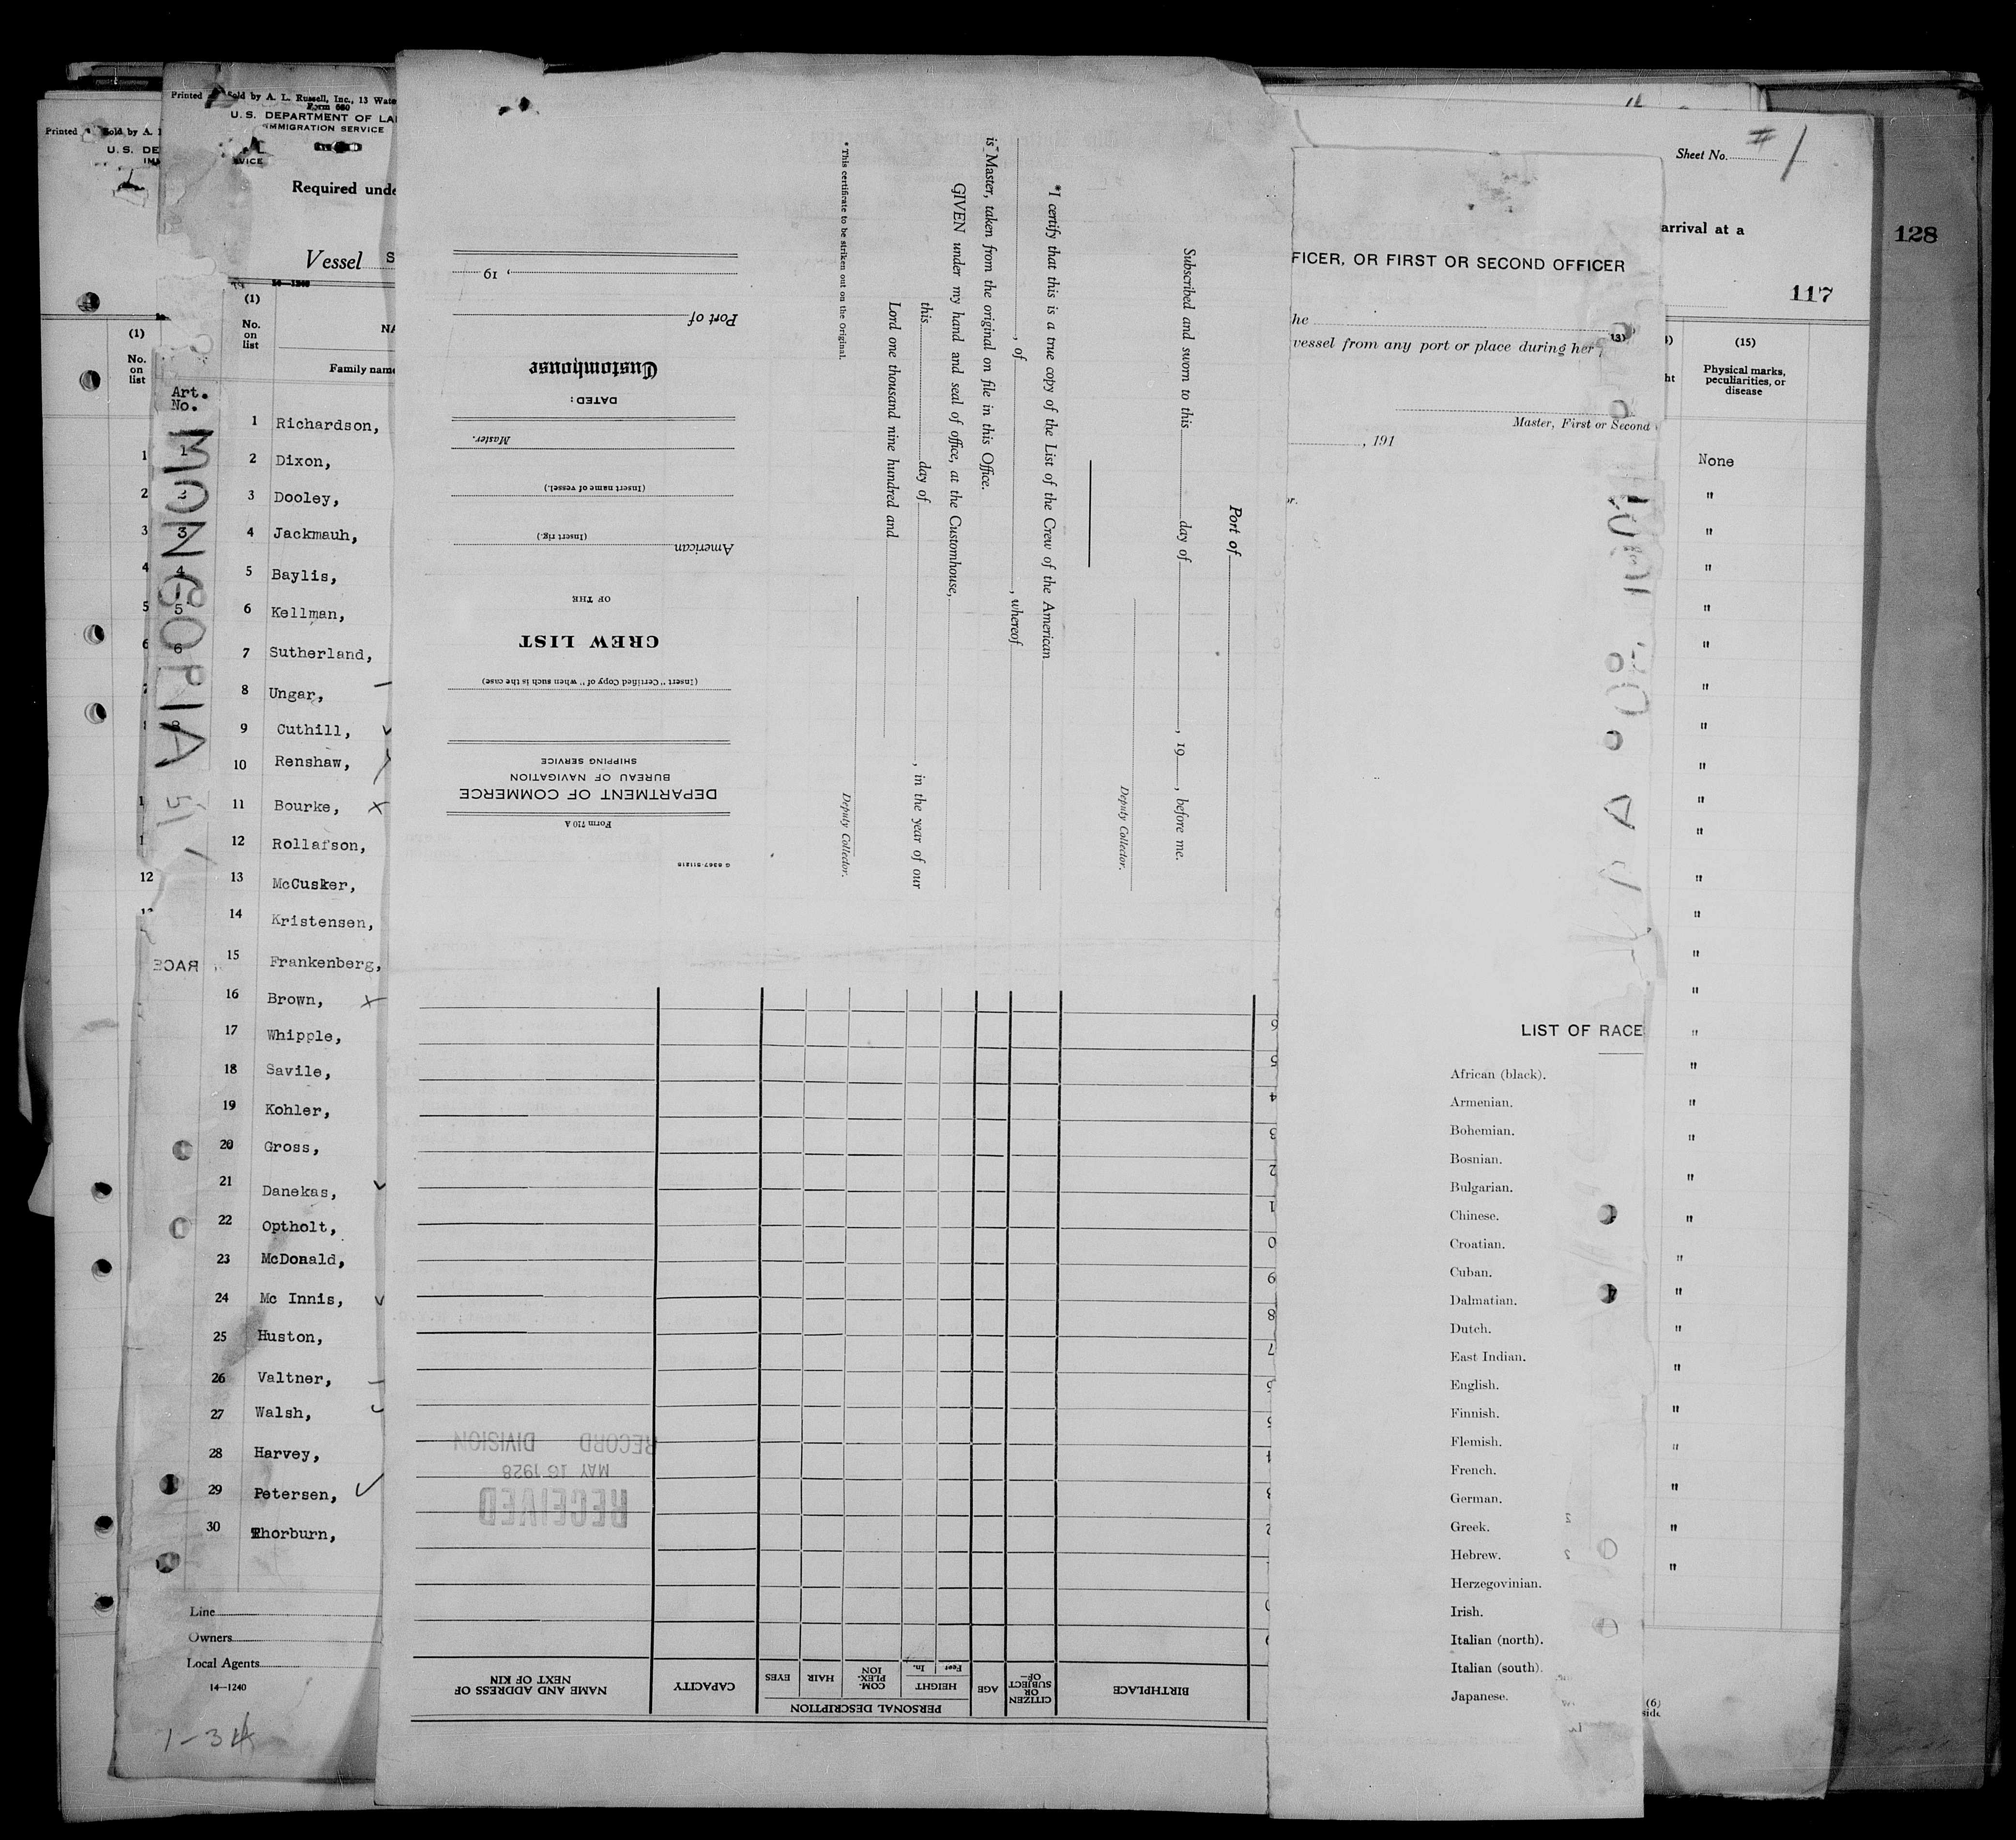 Printed
Sold by A. L. Russell, Inc., 13 Wate
Form 680
U. S. DEPARTMENT OF LA
IMMIGRATION SERVICE
Required unde
Vessel S
Printed
Sold by A.
U. S. DE
IMM
VICE
(1)
No.
on
list
(1)
No.
on
list
NA
Family name
Art.
No.
MONGOLIA
1 Richardson,
2 Dixon,
3 Dooley,
4 Jackmauh,
5 Baylis,
6 Kellman,
7 Sutherland,
8 Ungar,
9 Cuthill,
10 Renshaw,
11 Bourke,
12 Rollafson,
13 McCusker,
14 Kristensen,
15 Frankenberg,
16 Brown,
17 Whipple,
18 Savile,
19 Kohler,
20 Gross,
21 Danekas,
22 Optholt,
23 McDonald,
24 Mc Innis,
25 Huston,
26 Valtner,
27 Walsh,
28 Harvey,
29 Petersen,
30 Thorburn,
RACE
Line
Owners
Local Agents
14—1240
1-34
Port of
Subscribed and sworn to this day of , 19 , before me.
Deputy Collector.
*I certify that this is a true copy of the List of the Crew of the American
, of , whereof
is Master, taken from the original on file in this Office.
GIVEN under my hand and seal of office, at the Customhouse,
this day of , in the year of our
Lord one thousand nine hundred and
Deputy Collector.
* This certificate to be striken out on the Original.
G 8367-511218
Form 710 A
DEPARTMENT OF COMMERCE
BUREAU OF NAVIGATION
SHIPPING SERVICE
(Insert "Certified Copy of" when such is the case)
CREW LIST
OF THE
American
(Insert rig.)
(Insert name of vessel.)
Master.
DATED:
Customhouse
Port of
, 19
BIRTHPLACE
CITIZEN
OR
SUBJECT
OF—
AGE
PERSONAL DESCRIPTION
HEIGHT
Feet
In.
COM-
PLEX-
ION
HAIR
EYES
CAPACITY
NAME AND ADDRESS OF
NEXT OF KIN
RECEIVED
MAY 16 1928
RECORD DIVISION
FICER, OR FIRST OR SECOND OFFICER
he
vessel from any port or place during her
Master, First or Second
, 191
or.
LIST OF RACE
African (black).
Armenian.
Bohemian.
Bosnian.
Bulgarian.
Chinese.
Croatian.
Cuban.
Dalmatian.
Dutch.
East Indian.
English.
Finnish.
Flemish.
French.
German.
Greek.
Hebrew.
Herzegovinian.
Irish.
Italian (north).
Italian (south).
Japanese.
Sheet No. # 1
arrival at a
128
117
(15)
Physical marks,
peculiarities, or
disease
None
(6)
side